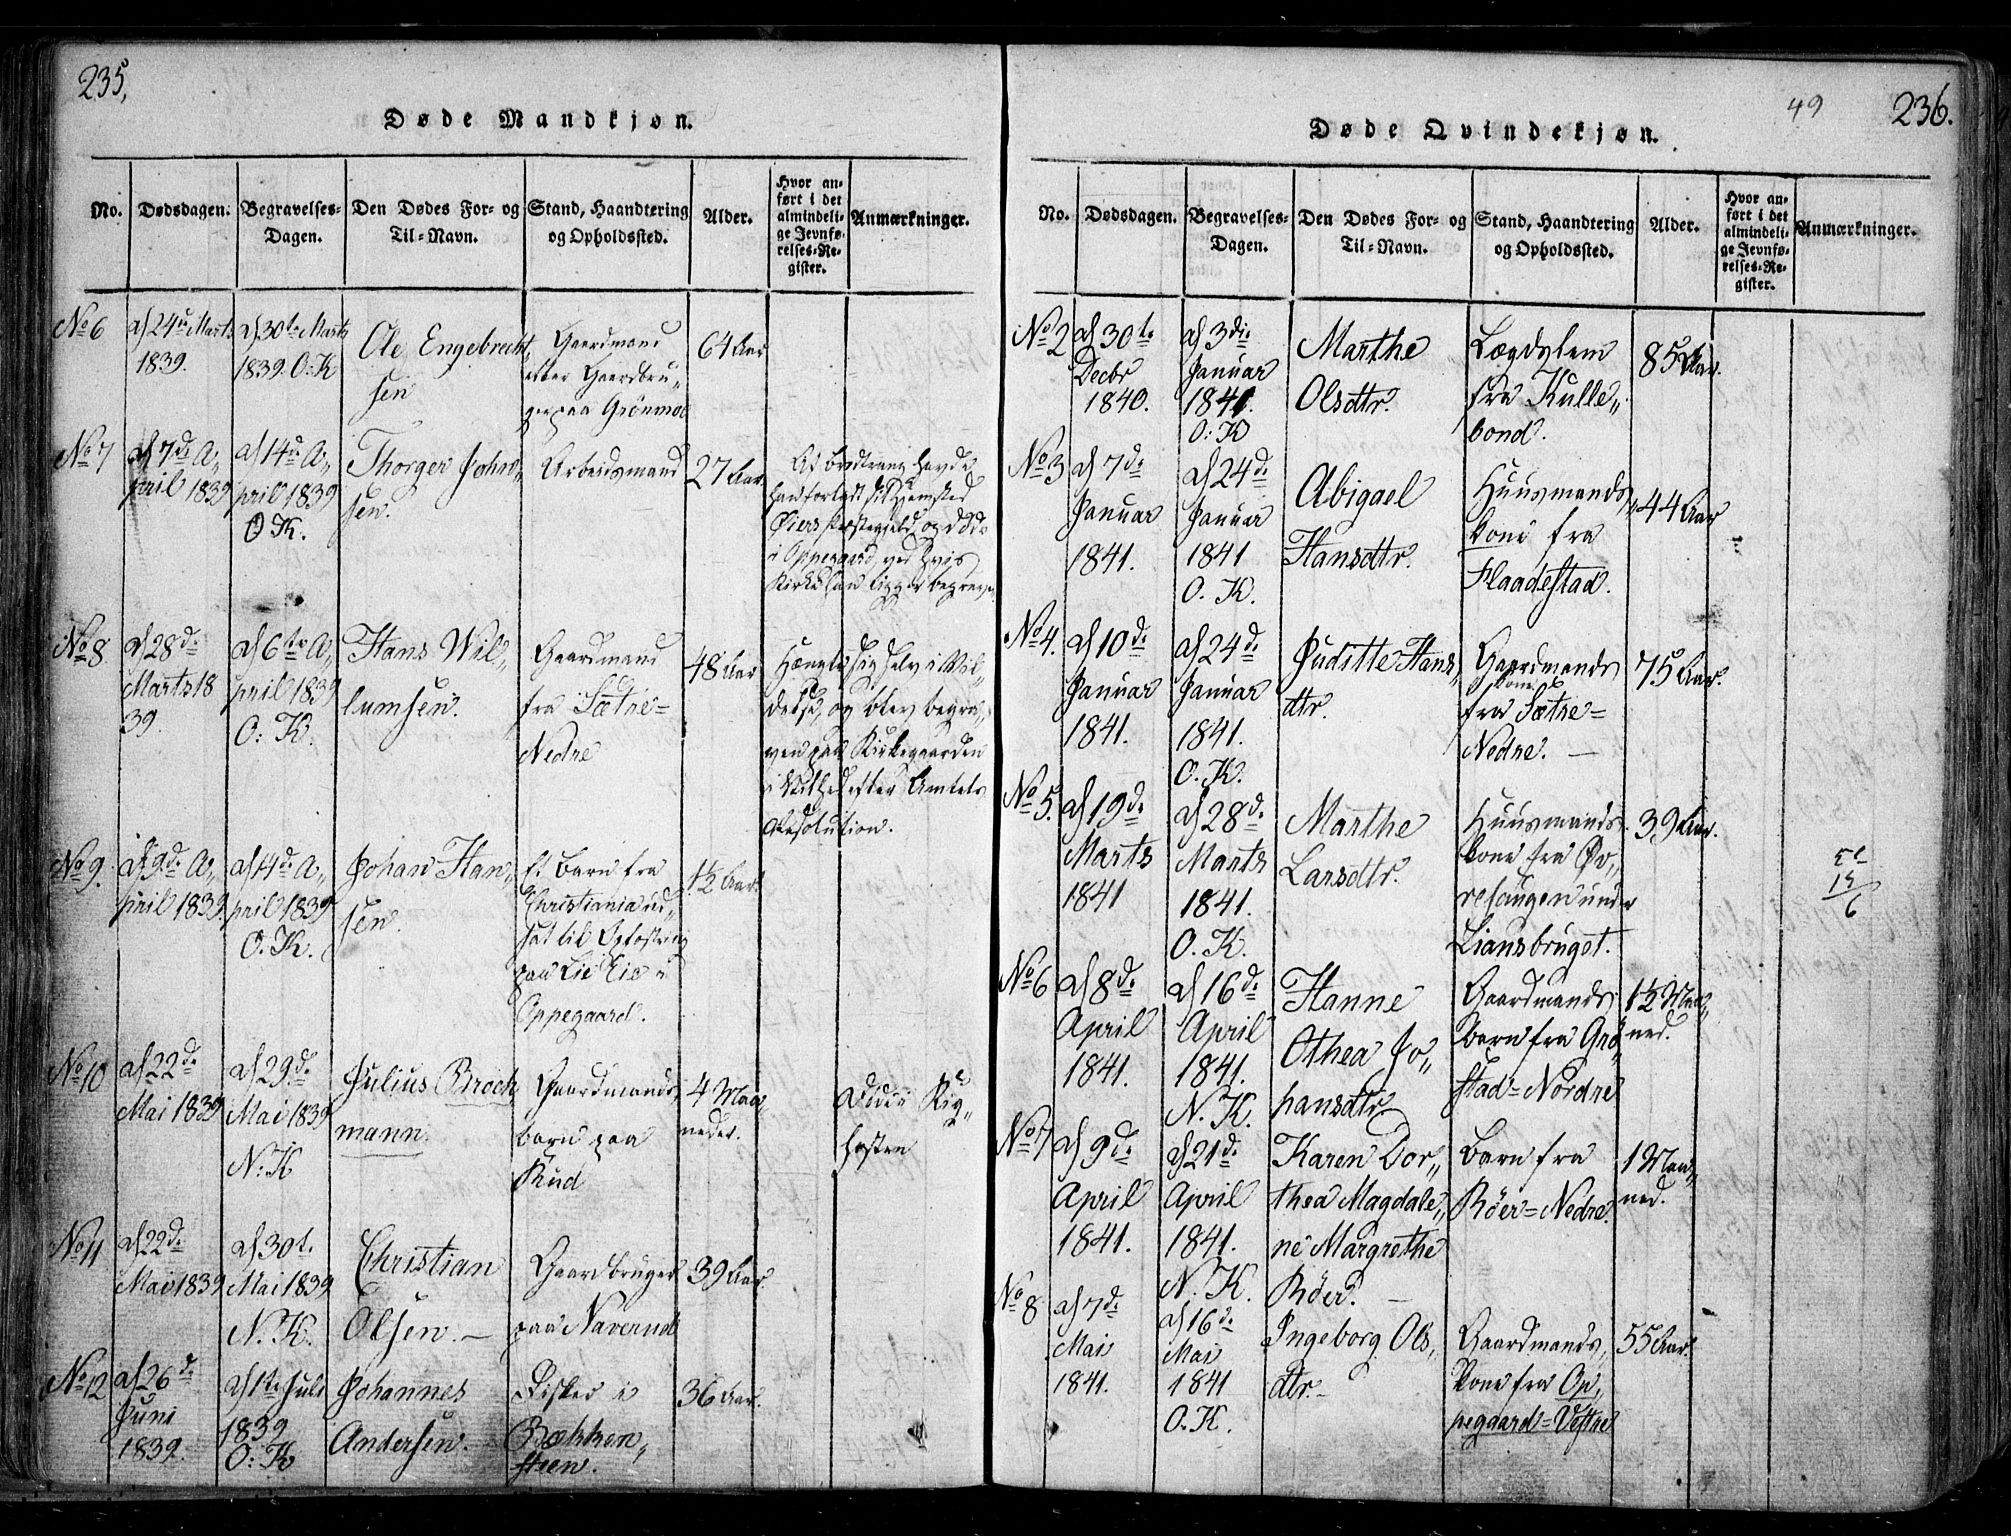 235.
Døde Mandkjøn.
No.
Dødsdagen.
Begravelses-
Dagen.
Den Dødes For- og
Til-Navn.
Stand, Haandtering
og Opholdssted.
Alder.
Hvor an-
ført i det
almindeli-
ge Jevnfø-
relses-Re-
gister.
Anmærkninger.
No 6
d 24de Marts
1839.
d 30te Marts
1839. O: K
Ole Engebrecht
sen
Gaardmand
eller Gaardbru„
ger paa Grönmoe
64 Aar
No 7
d 7de A„
pril 1839
d 14de A„
pril 1839
O K.
Thorger Johan„
sen.
Arbeidsmand
27 Aar.
Af Brødtrang havde
han forladt sit Hiemsted
Øiers Præstegjeld, og døde
i Oppegaard, ved hvis
Kirke han ligger begraven
No 8
d 28de
Marts 18
39.
d 6te A„
pril 1839
O: K.
Hans Wil„
lumsen.
Gaardmand
fra Sætre=
Nedre
48 Aar
Hængte sig selv i Vil„
delse, og blev begra„
ven paa Kirkegaarden
i Stilhed efter Amtets
Resolution.
No 9.
d 9de A„
pril 1839.
d 14de A„
pril 1839
O: K.
Johan Han„
sen.
Et Barn fra
Christiania ud„
sat til Opfostring
paa Lie Eie i
Oppegaard.
1½ Aar.
No 10
d 22de
Mai 1839
d 29de
Mai 1839
N: K
Julius Broch
mann.
Gaardmands
barn paa
Rud
4 Maa„
neder.
Kig„
hosten
No 11
d 22de
Mai 1839
d 30te
Mai 1839
N. K.
Christian
Olsen. —
Gaardbruger
paa Naverud
39 Aar.
No 12
d 26de
Juni
1839.
d 1ste Juli
1839
O: K
Johannes
Andersen.
Fisker i
Bækken„
steen.
36 Aar.
49
236.
Døde Qvindekjøn.
No.
Dødsdagen.
Begravelses-
Dagen.
Den Dødes For- og
Til-Navn.
Stand, Haandtering
og Opholdssted.
Alder.
Hvor an-
ført i det
almindeli-
ge Jevnfø-
relses-Re-
gister.
Anmærkninger.
No 2
d 30te
Decbr
1840.
d 3die
Januar
1841.
O: K
Marthe
Olsdtr.
Lægdslem
fra Kulle„
bond.
85 Aar.
No 3
d 7de
Januar
1841.
d 24de
Januar
1841
O. K.
Abigael
Hansdtr.
Huusmands„
kone fra
Flaadestad.
44 Aar
No 4.
d 10de
Januar
1841.
d 24de
Januar
1841.
O. K.
Juditte Hans„
dtr.
Gaardmands
kone
fra Sætre=
Nedre. —
75 Aar.
No 5.
d 19de
Marts
1841
d 28de
Marts
1841.
O. K.
Marthe
Larsdtr.
Huusmands
kone fra Øv„
resangen under
Liansbruget.
39 Aar.
No 6
d 8de
April
1841.
d 16de
April
1841.
N. K.
Hanne
Othea Jo„
hansdtr
Gaardmands
barn fra Grö„
stad=Nordre
1½ Maa„
ned.
No 7
d 9de
April
1841.
d 21de
April
1841.
N. K.
Karen Dor„
thea Magdale„
ne Margrethe
Röer. —
Barn fra
Röer=Nedre.
1 Maa„
ned.
No 8
d 7de
Mai
1841.
d 16de
Mai
1841
O. K.
Ingeborg Ols„
dtr. —
Gaardmands„
kone fra Op„
pegaard=Vestre
55 Aar.